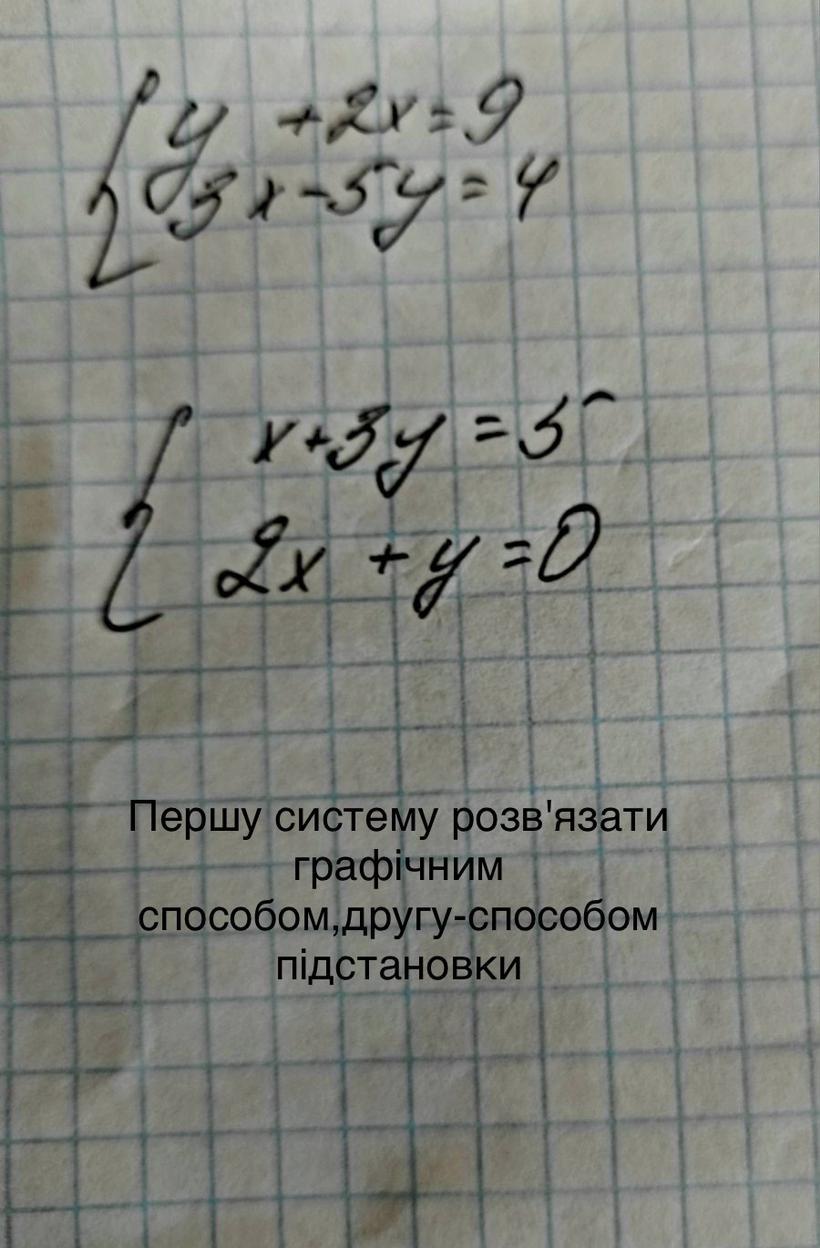 y +2x=9
3x-5y=4
x+3y=5
2x+y=0
Першу систему розв'язати
графічним
способом,другу-способом
підстановки